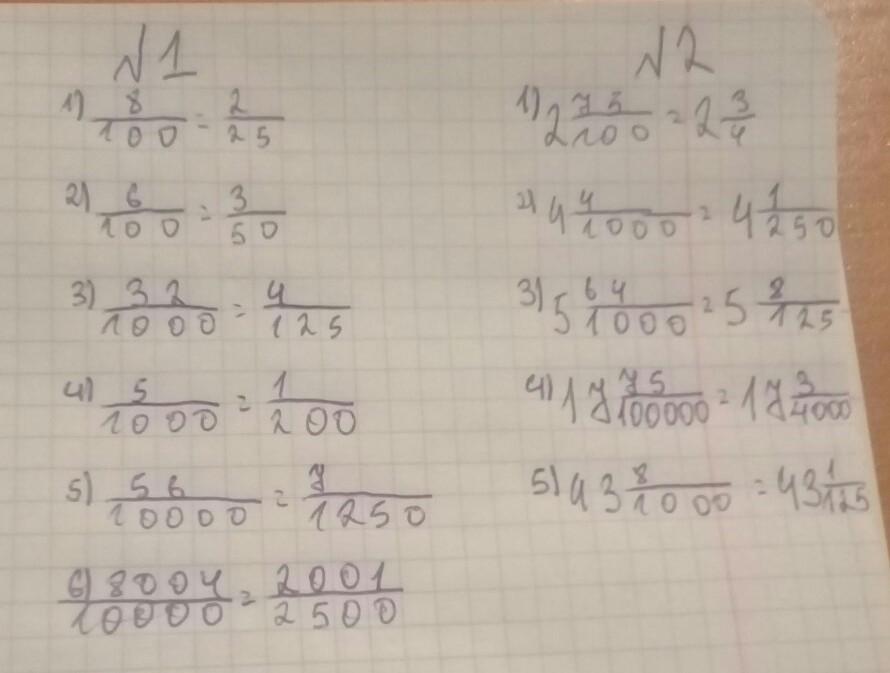 №1
1) 8/100 = 2/25
2) 6/100 = 3/50
3) 32/1000 = 4/125
4) 5/1000 = 1/200
5) 56/10000 = 7/1250
6) 8004/10000 = 2001/2500
№2
1) 2 75/100 = 2 3/4
2) 4 4/1000 = 4 1/250
3) 5 64/1000 = 5 8/125
4) 17 75/100000 = 17 3/4000
5) 43 8/1000 = 43 1/125